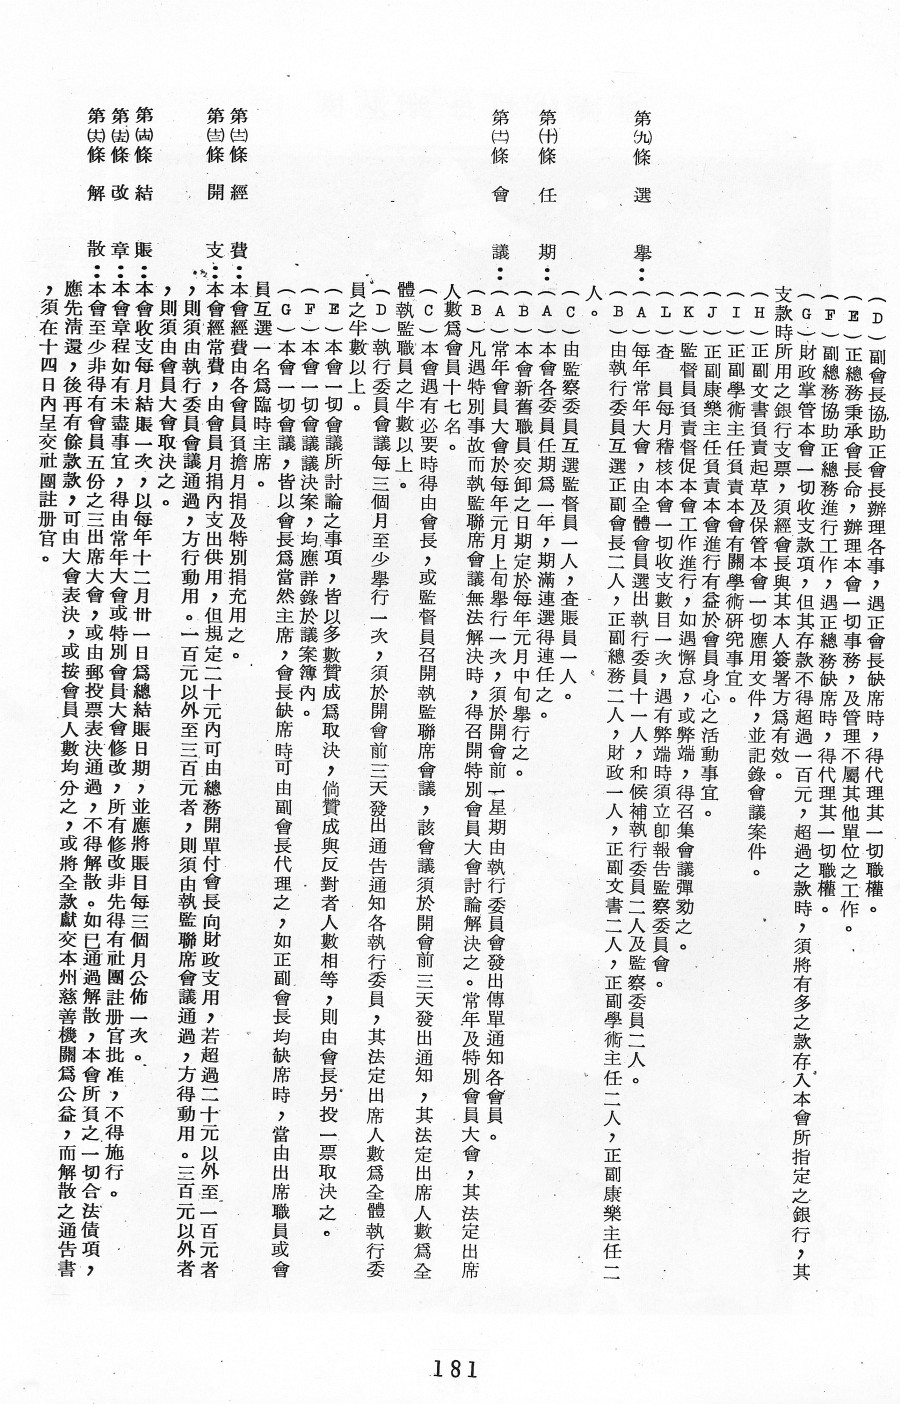 （Ｄ）副會長協助正會長辦理各事，遇正會長缺席時，得代理其一切職權。
（Ｅ）正總務秉承會長命，辦理本會一切事務，及管理不屬其他單位之工作。
（Ｆ）副總務協助正總務進行工作，遇正總務缺席時，得代理其一切職權。
（Ｇ）財政掌管本會一切收支款項，但其存款不得超過一百元，超過之款時，須將有多之款存入本會所指定之銀行，其
支款時所用之銀行支票，須經會長與其本人簽署方爲有效。
（Ｈ）正副文書負責起草及保管本會一切應用文件，並記錄會議案件。
（Ｉ）正副學術主任負責本會有關學術研究事宜。
（Ｊ）正副康樂主任負責本會進行有益於會員身心之活動事宜。
（Ｋ）監督員負責督促本會工作進行，如遇懈怠，或弊端，得召集會議彈劾之。
（Ｌ）查　員每月稽核本會一切收支數目一次，遇有弊端時須立卽報告監察委員會。
第㈨條　選　　舉：（Ａ）每年常年大會，由全體會員選出執行委員十一人，和候補執行委員二人及監察委員二人。
（Ｂ）由執行委員互選正副會長二人，正副總務二人，財政一人，正副文書二人，正副學術主任二人，正副康樂主任二
人。
（Ｃ）由監察委員互選監督員一人，查賬員一人。
第㈩條　任　　期：（Ａ）本會各委員任期爲一年，期滿連選得連任之。
（Ｂ）本會新舊職員交卸之日期定於每年元月中旬舉行之。
第(十一)條　會　　議：（Ａ）常年會員大會於每年元月上旬舉行一次，須於開會前一星期由執行委員會發出傳單通知各會員。
（Ｂ）凡遇特別事故而執監聯席會議無法解決時，得召開特別會員大會討論解決之。常年及特別會員大會，其法定出席
人數爲會員十七名。
（Ｃ）本會遇有必要時得由會長，或監督員召開執監聯席會議，該會議須於開會前三天發出通知，其法定出席人數爲全
體執監職員之半數以上。
（Ｄ）執行委員會議每三個月至少舉行一次，須於開會前三天發出通告通知各執行委員，其法定出席人數爲全體執行委
員之半數以上。
（Ｅ）本會一切會議所討論之事項，皆以多數贊成爲取決，倘贊成與反對者人數相等，則由會長另投一票取決之。
（Ｆ）本會一切會議議決案，均應詳錄於議案簿內。
（Ｇ）本會一切會議，皆以會長爲當然主席，會長缺席時可由副會長代理之，如正副會長均缺席時，當由出席職員或會
員互選一名爲臨時主席。
第(十二)條　經　　費：本會經費由各會員負擔月捐及特別捐充用之。
第(十三)條　開　　支：本會經常費，由會員月捐內支出供用，但規定二十元內可由總務開單付會長向財政支用，若超過二十元以外至一百元者
，則須由執行委員會議通過，方行動用。一百元以外至三百元者，則須由執監聯席會議通過，方得動用。三百元以外者
，則須由會員大會取決之。
第(十四)條　結　　賬：本會收支每月結賬一次，以每年十二月卅一日爲總結賬日期，並應將賬目每三個月公佈一次。
第(十五)條　改　　章：本會章程如有未盡事宜，得由常年大會或特別會員大會修改，所有修改非先得有社團註册官批准，不得施行。
第(十六)條　解　　散：本會至少非得有會員五份之三出席大會，或由郵投票表決通過，不得解散。如已通過解散，本會所負之一切合法債項，
應先淸還，後再有餘款款，可由大會表決，或按會員人數均分之，或將全款獻交本州慈善機關爲公益，而解散之通告書
，須在十四日內呈交社團註册官。
181